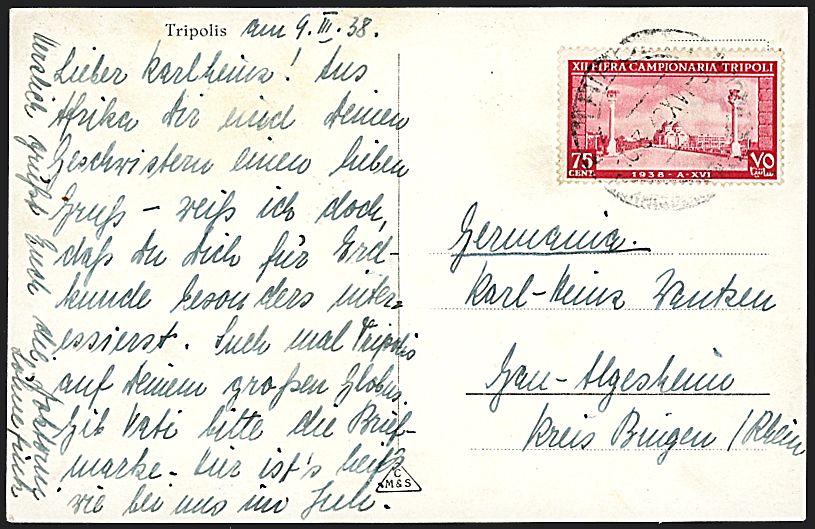 Tripolis am 9. III. 38.
Lieber Karlheinz! Aus
Afrika Dir und Deinen
Geschwistern einen lieben
Gruß – weiß ich doch,
daß Du Dich für Erd-
kunde besonders inter-
essierst. Such mal Tripolis
auf Deinem großen Globus.
Gib Vati bitte die Brief-
marke. Hier ist's heiß
wie bei uns im Juli.
Herzlich grüßt Euch die
C
M&S
XII FIERA CAMPIONARIA TRIPOLI
75
CENT.
1938 - A - XVI
٧٥
Germania.
Karl-Heinz
Gau-Algesheim
Kreis Bingen / Rhein